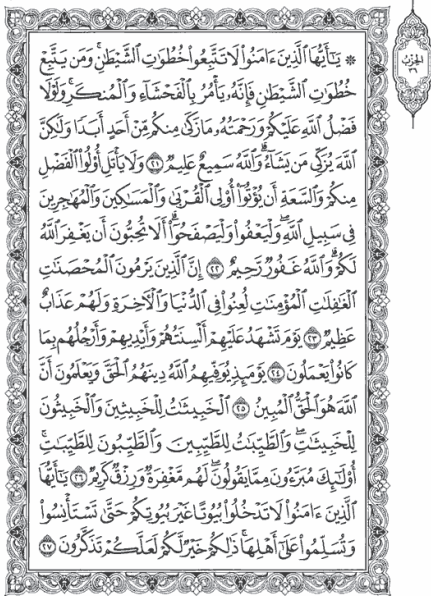 ۞ يَٰٓأَيُّهَا ٱلَّذِينَ ءَامَنُوا۟ لَا تَتَّبِعُوا۟ خُطُوَٰتِ ٱلشَّيْطَٰنِۚ وَمَن يَتَّبِعْ
خُطُوَٰتِ ٱلشَّيْطَٰنِ فَإِنَّهُۥ يَأْمُرُ بِٱلْفَحْشَآءِ وَٱلْمُنكَرِۚ وَلَوْلَا
فَضْلُ ٱللَّهِ عَلَيْكُمْ وَرَحْمَتُهُۥ مَا زَكَىٰ مِنكُم مِّنْ أَحَدٍ أَبَدًا وَلَٰكِنَّ
ٱللَّهَ يُزَكِّى مَن يَشَآءُۗ وَٱللَّهُ سَمِيعٌ عَلِيمٌ ٢١ وَلَا يَأْتَلِ أُو۟لُوا۟ ٱلْفَضْلِ
مِنكُمْ وَٱلسَّعَةِ أَن يُؤْتُوٓا۟ أُو۟لِى ٱلْقُرْبَىٰ وَٱلْمَسَٰكِينَ وَٱلْمُهَٰجِرِينَ
فِى سَبِيلِ ٱللَّهِۖ وَلْيَعْفُوا۟ وَلْيَصْفَحُوٓا۟ۗ أَلَا تُحِبُّونَ أَن يَغْفِرَ ٱللَّهُ
لَكُمْۗ وَٱللَّهُ غَفُورٌ رَّحِيمٌ ٢٢ إِنَّ ٱلَّذِينَ يَرْمُونَ ٱلْمُحْصَنَٰتِ
ٱلْغَٰفِلَٰتِ ٱلْمُؤْمِنَٰتِ لُعِنُوا۟ فِى ٱلدُّنْيَا وَٱلْءَاخِرَةِ وَلَهُمْ عَذَابٌ
عَظِيمٌ ٢٣ يَوْمَ تَشْهَدُ عَلَيْهِمْ أَلْسِنَتُهُمْ وَأَيْدِيهِمْ وَأَرْجُلُهُم بِمَا
كَانُوا۟ يَعْمَلُونَ ٢٤ يَوْمَئِذٍ يُوَفِّيهِمُ ٱللَّهُ دِينَهُمُ ٱلْحَقَّ وَيَعْلَمُونَ أَنَّ
ٱللَّهَ هُوَ ٱلْحَقُّ ٱلْمُبِينُ ٢٥ ٱلْخَبِيثَٰتُ لِلْخَبِيثِينَ وَٱلْخَبِيثُونَ
لِلْخَبِيثَٰتِۖ وَٱلطَّيِّبَٰتُ لِلطَّيِّبِينَ وَٱلطَّيِّبُونَ لِلطَّيِّبَٰتِۚ
أُو۟لَٰٓئِكَ مُبَرَّءُونَ مِمَّا يَقُولُونَۖ لَهُم مَّغْفِرَةٌ وَرِزْقٌ كَرِيمٌ ٢٦ يَٰٓأَيُّهَا
ٱلَّذِينَ ءَامَنُوا۟ لَا تَدْخُلُوا۟ بُيُوتًا غَيْرَ بُيُوتِكُمْ حَتَّىٰ تَسْتَأْنِسُوا۟
وَتُسَلِّمُوا۟ عَلَىٰٓ أَهْلِهَاۚ ذَٰلِكُمْ خَيْرٌ لَّكُمْ لَعَلَّكُمْ تَذَكَّرُونَ ٢٧
الحزب
٣٦